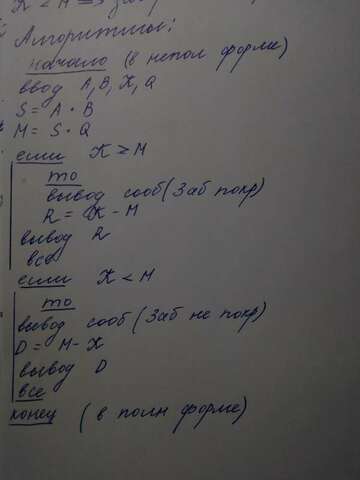 X < M =>
Алгоритмы:
начало (в непол форме)
ввод A, B, X, Q
S = A · B
M = S · Q
если X ≥ M
то
вывод сооб (Заб покр)
R = X - M
вывод R
все
если X < M
то
вывод сооб (Заб не покр)
D = M - X
вывод D
все
конец (в полн форме)